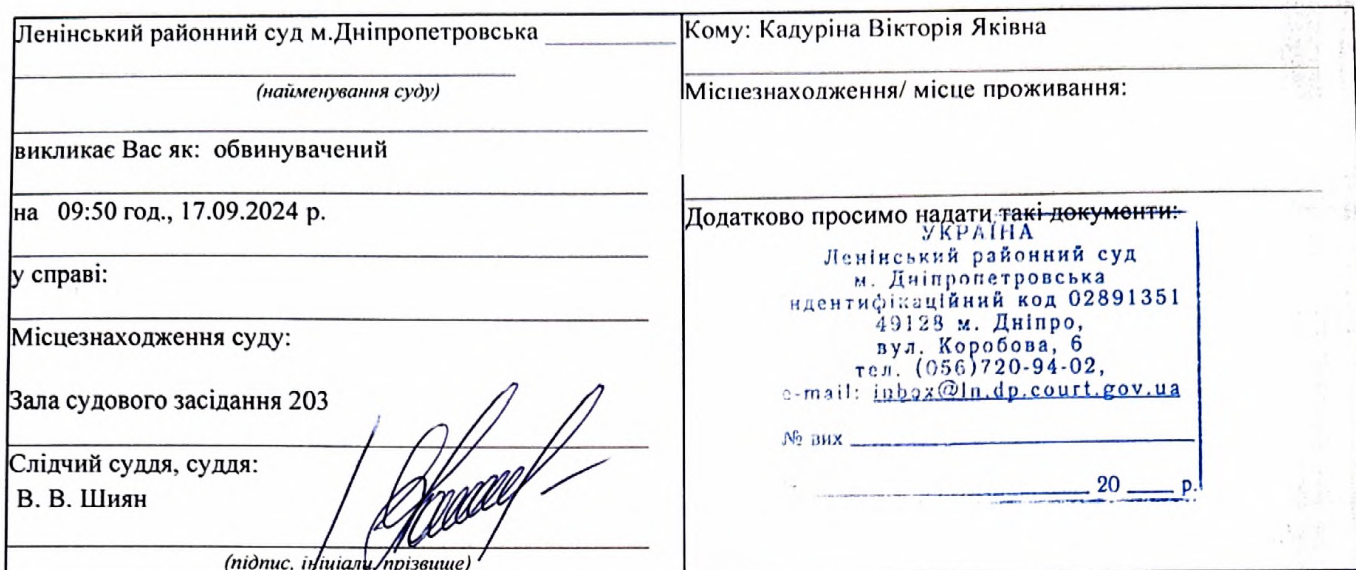 Ленінський районний суд м.Дніпропетровська
(найменування суду)
викликає Вас як: обвинувачений
на 09:50 год., 17.09.2024 р.
у справі:
Місцезнаходження суду:
Зала судового засідання 203
Слідчий суддя, суддя:
В. В. Шиян
(підпис, ініціали, прізвище)
Кому: Кадуріна Вікторія Яківна
Місцезнаходження/ місце проживання:
Додатково просимо надати такі документи:
УКРАЇНА
Ленінський районний суд
м. Дніпропетровська
ідентифікаційний код 02891351
49128 м. Дніпро,
вул. Коробова, 6
тел. (056)720-94-02,
e-mail: inbox@ln.dp.court.gov.ua
№ вих
20 р.